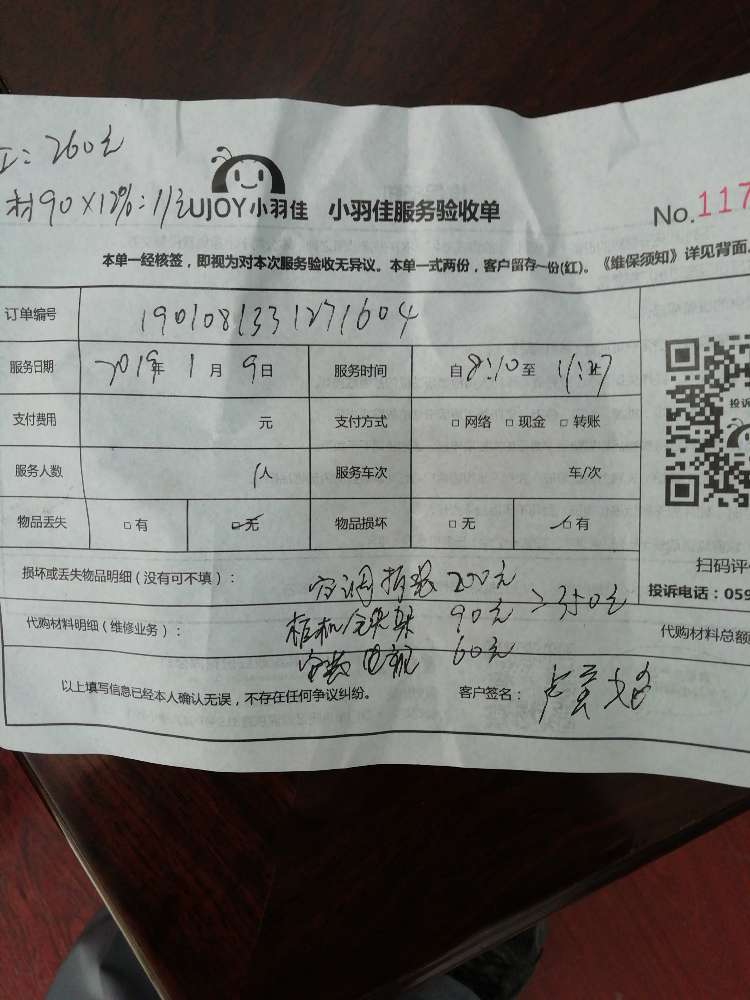 工：260元
材90×12%：11元
UJOY小羽佳 小羽佳服务验收单
No.117
本单一经核签，即视为对本次服务验收无异议。本单一式两份，客户留存一份(红)。《维保须知》详见背面。
订单编号 1901081331271604
服务日期 2019年 1月 9日 服务时间 自8:10至 11:27
支付费用 元 支付方式 □网络 □现金 □转账
服务人数 1人 服务车次 车/次
物品丢失 □有 □无 物品损坏 □无 □有
投诉
扫码评
投诉电话：059
损坏或丢失物品明细（没有可不填）：
空调拆装 200元
代购材料明细（维修业务）：
柜机 90元 >350元
代购材料总额
安装电视 60元
以上填写信息已经本人确认无误，不存在任何争议纠纷。 客户签名：